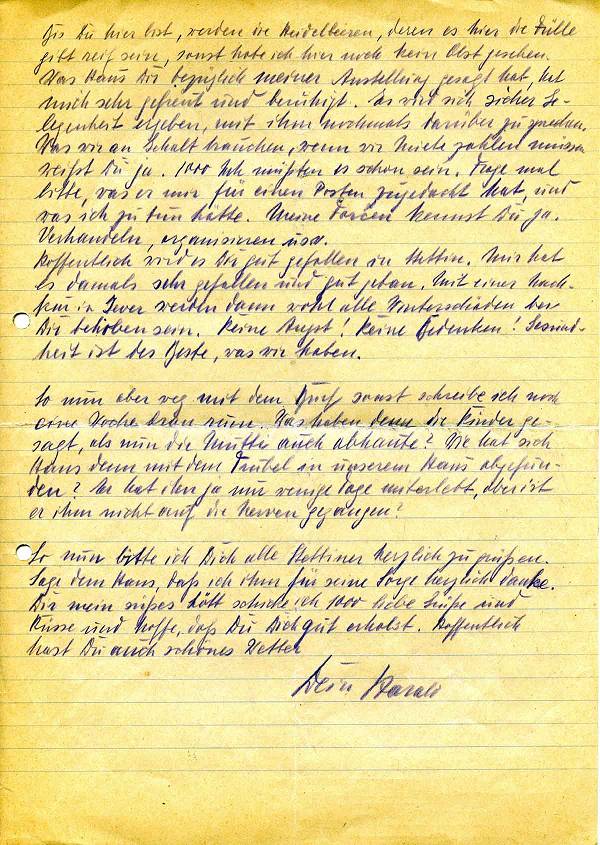 Bis Du hier bist, werden die Heidelbeeren, deren es hier die Fülle
gibt reif sein, sonst habe ich hier noch kein Obst gesehen.
Was Hans Dir bezüglich meiner Anstellung gesagt hat, hat
mich sehr gefreut und beruhigt. Es wird sich sicher Ge-
legenheit ergeben, mit ihm nochmals darüber zu sprechen.
Was wir an Gehalt brauchen, wenn wir Miete zahlen müssen
weißt Du ja. 1000 Mk müßten es schon sein. Frage mal
bitte, was er mir für einen Posten zugedacht hat, und
was ich zu tun hätte. Meine Forcen kennst Du ja.
Verhandeln, organisieren usw.
Hoffentlich wird es Dir gut gefallen in Stettin. Mir hat
es damals sehr gefallen und gut getan. Mit einer Nach-
kur in werden dann wohl alle Winterschäden bei
Dir behoben sein. Keine Angst! Keine Bedenken! Gesund-
heit ist das Beste, was wir haben.
So nun aber weg mit dem sonst schreibe ich noch
eine Woche dran rum. Was haben denn die Kinder ge-
sagt, als nun die Mutti auch abhaute? Wie hat sich
Hans denn mit dem Trubel in unserem Haus abgefun-
den? Er hat ihn ja nur wenige Tage miterlebt, aber ist
er ihm nicht auf die Nerven gegangen?
So nun bitte ich Dich alle Stettiner herzlich zu grüßen.
Sage dem Hans, daß ich ihm für seine Sorge herzlich danke.
Dir mein süßes schicke ich 1000 liebe Grüße und
Küsse und hoffe, daß Du Dich gut erholst. Hoffentlich
hast Du auch schönes Wetter
Dein Harald